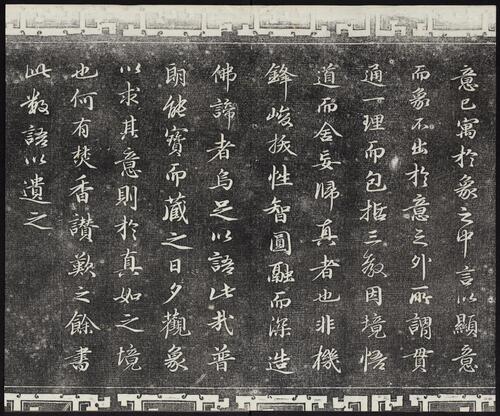 意已寓於象之中言以顯意
而象不出於意之外所謂貫
通一理而包括三教因境悟
道而舍妄歸真者也非機
鋒峻拔性智圓融而深造
佛諦者烏足以語此哉普
明能寶而藏之日夕觀象
以求其意則於真如之境
也何有焚香讚歎之餘書
此數語以遺之